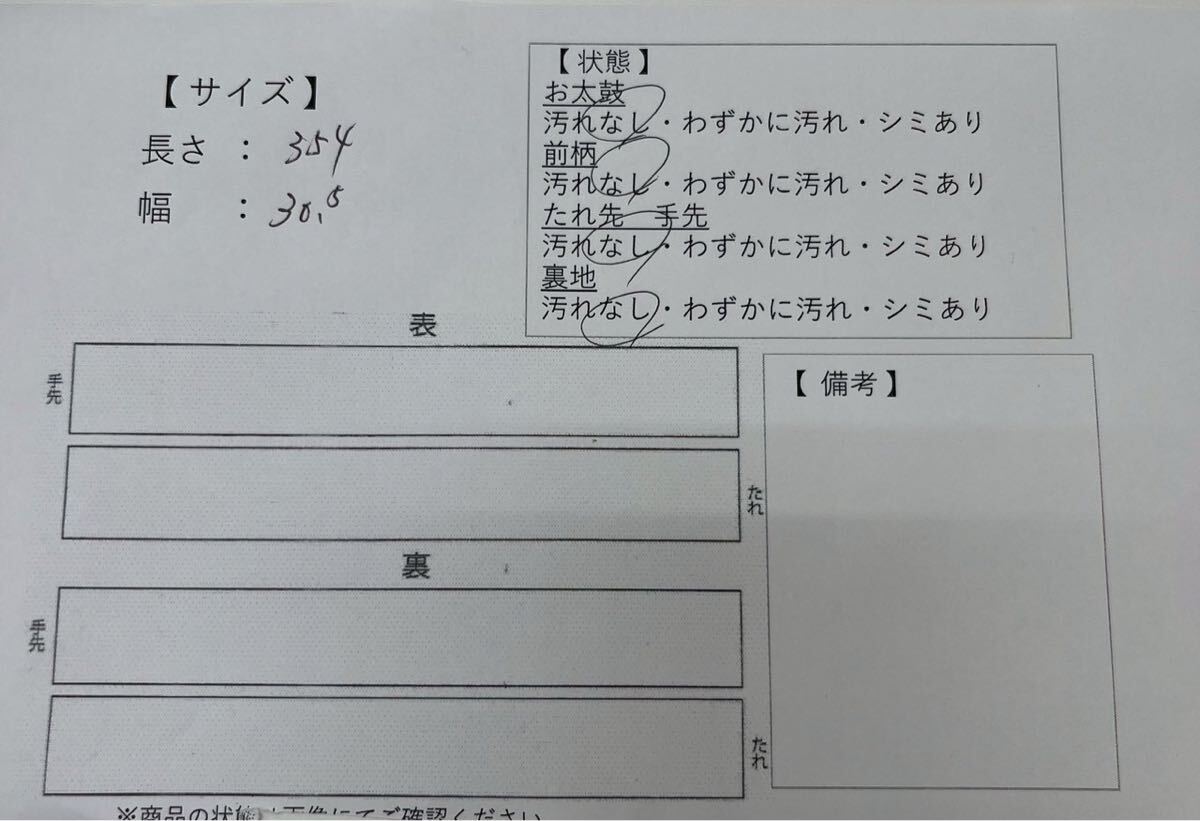 【 サイズ 】
長さ ： 354
幅 ： 30.5
【 状態 】
お太鼓
汚れなし・わずかに汚れ・シミあり
前柄
汚れなし・わずかに汚れ・シミあり
たれ先 手先
汚れなし・わずかに汚れ・シミあり
裏地
汚れなし・わずかに汚れ・シミあり
表
手先
たれ
裏
手先
たれ
【 備考 】
※商品の状態は画像にてご確認ください